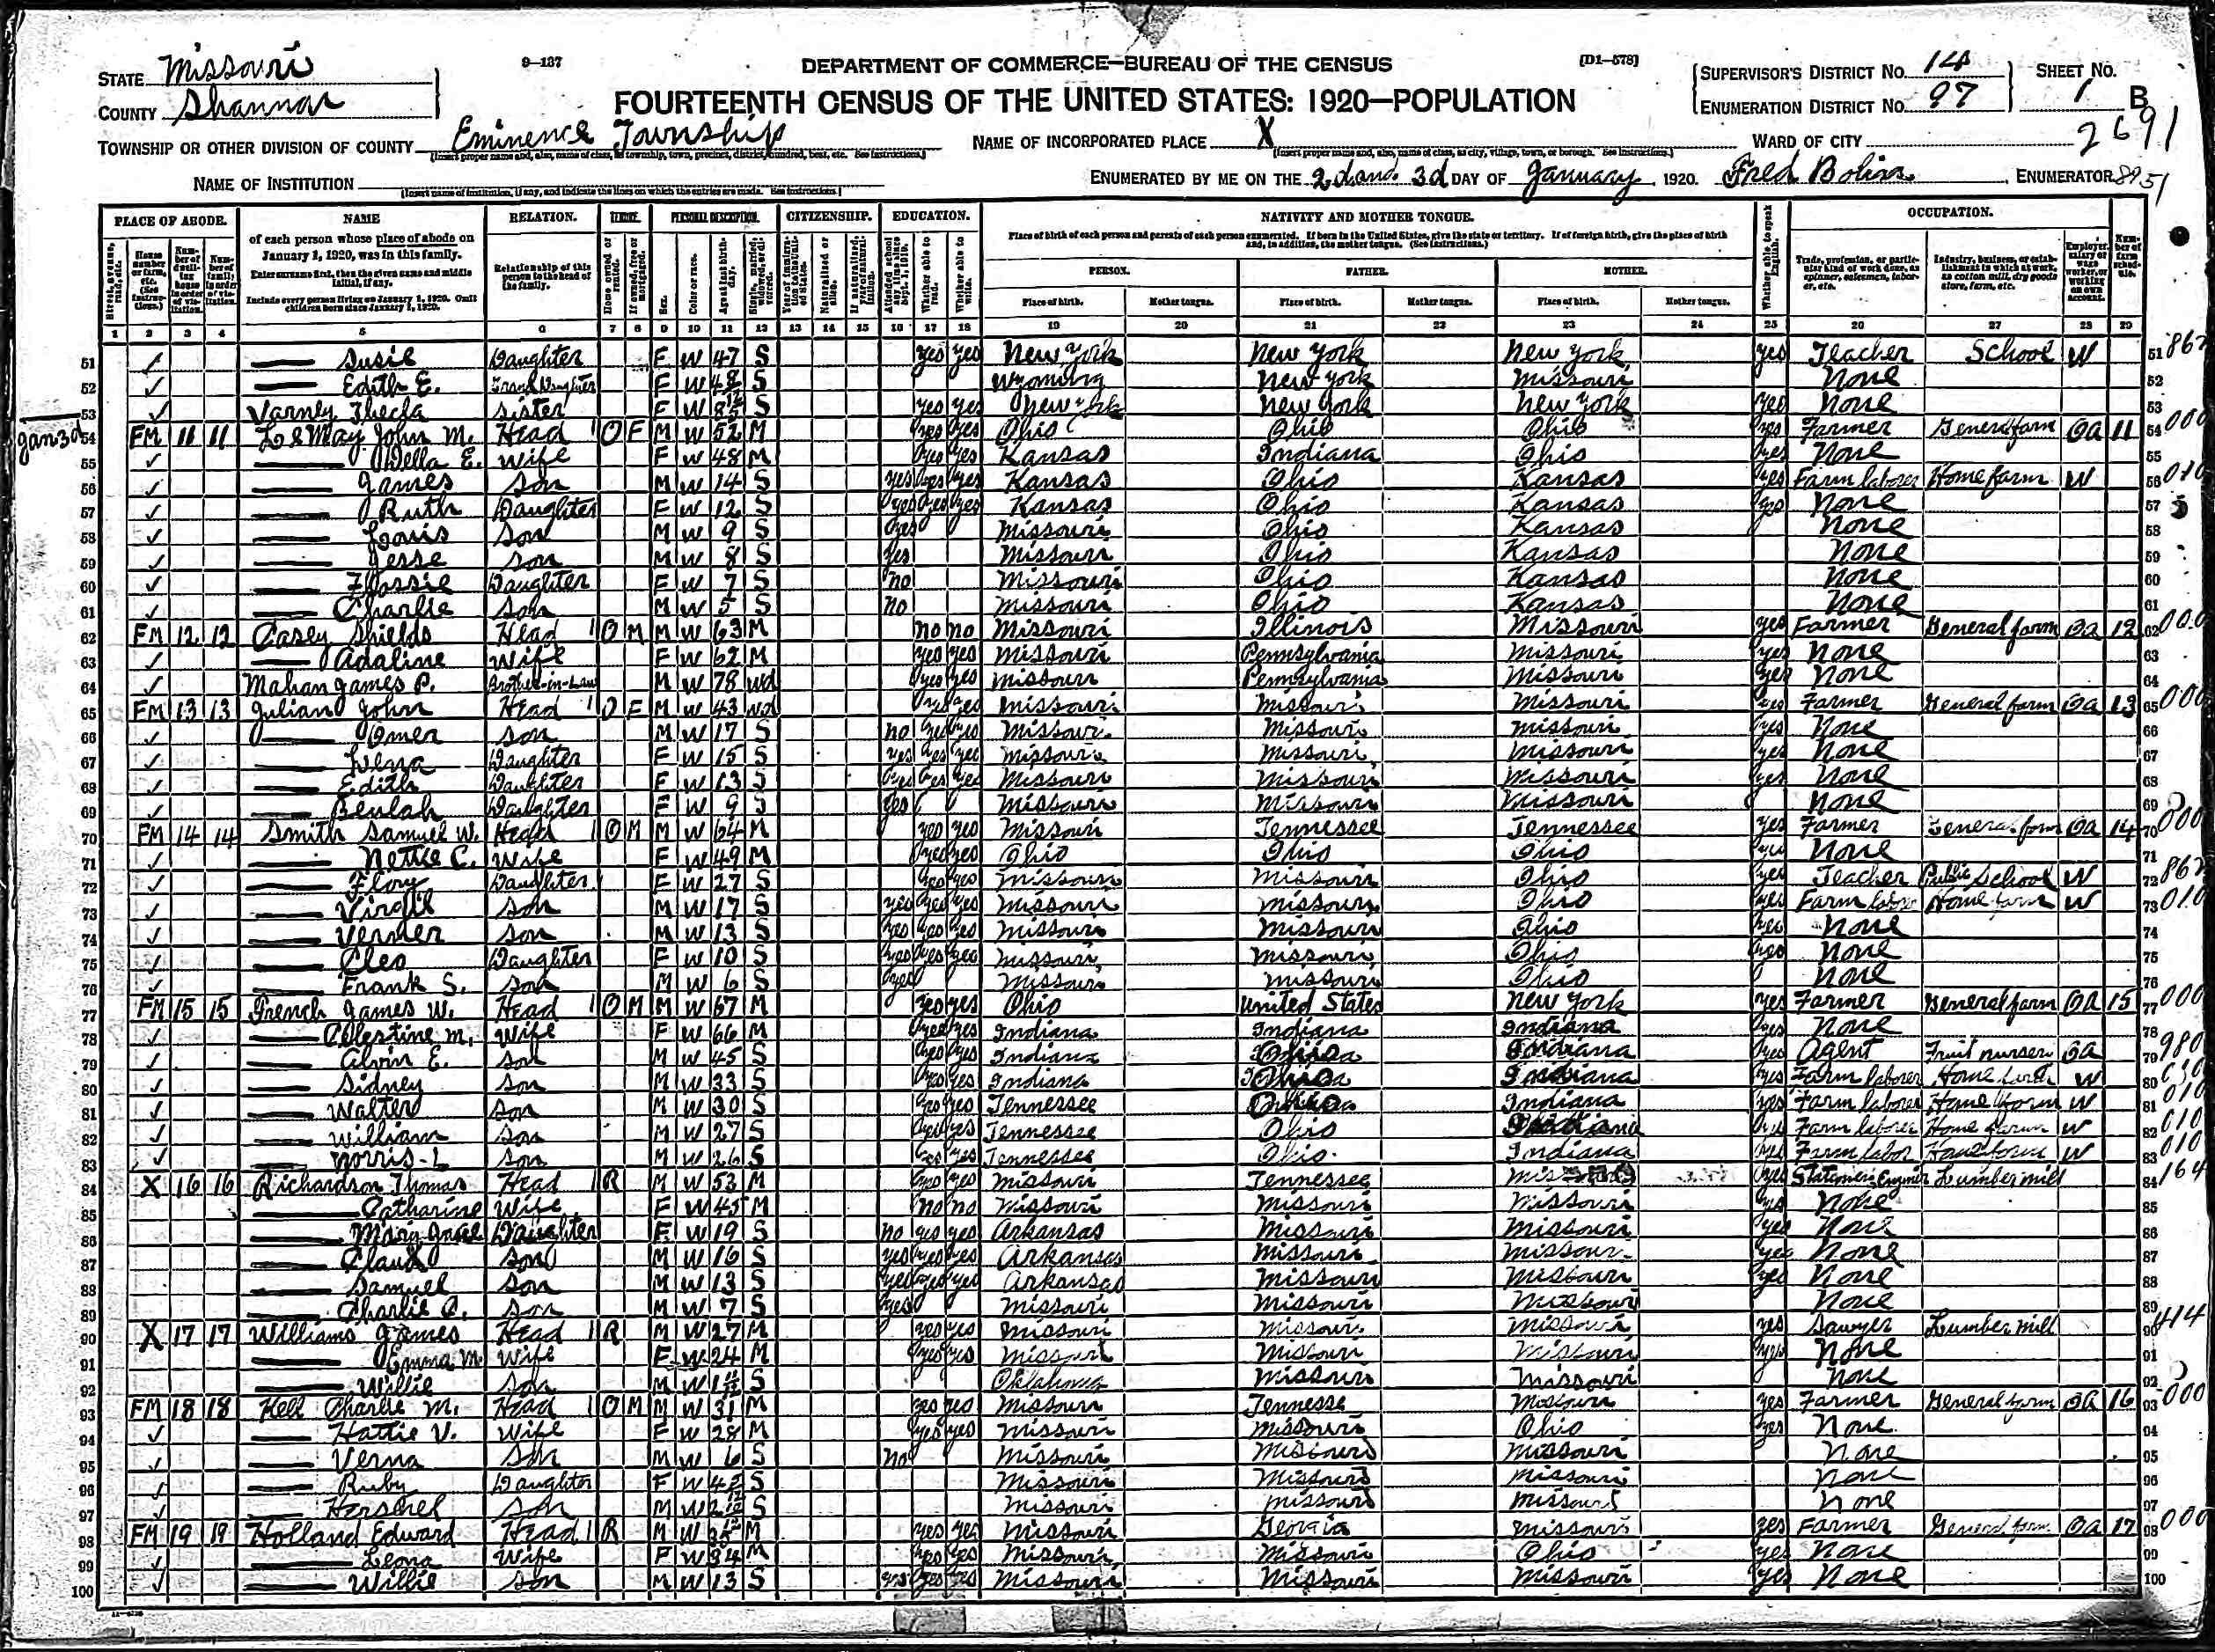 9–137
DEPARTMENT OF COMMERCE—BUREAU OF THE CENSUS
[D1–578]
STATE Missouri
COUNTY Shannon
FOURTEENTH CENSUS OF THE UNITED STATES: 1920—POPULATION
SUPERVISOR'S DISTRICT NO. 14
ENUMERATION DISTRICT NO. 97
SHEET NO. 1 B
2691
TOWNSHIP OR OTHER DIVISION OF COUNTY Eminence Township
NAME OF INCORPORATED PLACE X
WARD OF CITY
NAME OF INSTITUTION
ENUMERATED BY ME ON THE 2d and 3d DAY OF January, 1920. Fred Bolin, ENUMERATOR
8951
PLACE OF ABODE. NAME RELATION. TENURE. PERSONAL DESCRIPTION. CITIZENSHIP. EDUCATION. NATIVITY AND MOTHER TONGUE. OCCUPATION.
of each person whose place of abode on January 1, 1920, was in this family.
Enter surname first, then the given name and middle initial, if any.
Include every person living on January 1, 1920. Omit children born since January 1, 1920.
Relationship of this person to the head of the family.
PERSON. FATHER. MOTHER.
Place of birth. Mother tongue. Place of birth. Mother tongue. Place of birth. Mother tongue.
1 2 3 4 5 6 7 8 9 10 11 12 13 14 15 16 17 18 19 20 21 22 23 24 25 26 27 28 29
51 Susie Daughter F W 47 S yes yes New York New York New York yes Teacher School W 51
52 Edith E. Grand Daughter F W S Wyoming New York Missouri None 52
53 Varney Thecla Sister F W S yes yes New York New York New York yes None 53
Jan 3d
54 FM 11 11 LeMay John M. Head 1 O F M W 52 M yes yes Ohio Ohio Ohio yes Farmer General farm OA 11 54 000
55 Della E. Wife F W 48 M yes yes Kansas Indiana Ohio yes None 55
56 James Son M W 14 S yes yes yes Kansas Ohio Kansas yes Farm laborer Home farm W 56 010
57 Ruth Daughter F W 12 S yes yes yes Kansas Ohio Kansas yes None 57
58 Louis Son M W 9 S yes Missouri Ohio Kansas None 58
59 Jesse Son M W 8 S yes Missouri Ohio Kansas None 59
60 Flossie Daughter F W 7 S no Missouri Ohio Kansas None 60
61 Charlie Son M W 5 S no Missouri Ohio Kansas None 61
62 FM 12 12 Casey Shields Head 1 O M M W 63 M no no Missouri Illinois Missouri yes Farmer General farm OA 12 62 000
63 Adaline Wife F W 62 M yes yes Missouri Pennsylvania Missouri yes None 63
64 Mahan James P. Brother-in-Law M W 78 Wd yes yes Missouri Pennsylvania Missouri yes None 64
65 FM 13 13 Julian John Head 1 O F M W 43 Wd yes yes Missouri Missouri Missouri yes Farmer General farm OA 13 65 000
66 Omer Son M W 17 S no yes yes Missouri Missouri Missouri yes None 66
67 Lena Daughter F W 15 S yes yes yes Missouri Missouri Missouri yes None 67
68 Edith Daughter F W 13 S yes yes yes Missouri Missouri Missouri yes None 68
69 Beulah Daughter F W 9 S yes Missouri Missouri Missouri None 69
70 FM 14 14 Smith Samuel W. Head 1 O M M W 64 M yes yes Missouri Tennessee Tennessee yes Farmer General farm OA 14 70 000
71 Nettie C. Wife F W 49 M yes yes Ohio Ohio Ohio yes None 71
72 Flory Daughter F W 27 S yes yes Missouri Missouri Ohio yes Teacher Public School W 72
73 Virgil Son M W 17 S yes yes yes Missouri Missouri Ohio yes Farm labor Home farm W 73 010
74 Verner Son M W 13 S yes yes yes Missouri Missouri Ohio yes None 74
75 Cleo Daughter F W 10 S yes yes yes Missouri Missouri Ohio yes None 75
76 Frank S. Son M W 6 S yes Missouri Missouri Ohio None 76
77 FM 15 15 French James W. Head 1 O M M W 67 M yes yes Ohio United States New York yes Farmer General farm OA 15 77 000
78 Celestine M. Wife F W 66 M yes yes Indiana Indiana Indiana yes None 78
79 Alvin E. Son M W 45 S yes yes Indiana Indiana yes Agent Fruit nursery OA 79 980
80 Sidney Son M W 33 S yes yes Indiana Indiana yes Farm laborer Home farm W 80
81 Walter Son M W 30 S yes yes Tennessee Indiana yes Farm laborer Home farm W 81 010
82 William Son M W 27 S yes yes Tennessee Ohio Indiana yes Farm laborer Home farm W 82 010
83 Norris L Son M W 26 S yes yes Tennessee Ohio Indiana yes Farm labor Home farm W 83 010
84 X 16 16 Richardson Thomas Head 1 R M W 53 M yes yes Missouri Tennessee yes Lumber mill 84 164
85 Catharine Wife F W 45 M no no Missouri Missouri Missouri yes None 85
86 Daughter F W 19 S no yes yes Arkansas Missouri Missouri yes None 86
87 Claud Son M W 16 S yes yes yes Arkansas Missouri Missouri yes None 87
88 Samuel Son M W 13 S yes yes yes Arkansas Missouri Missouri yes None 88
89 Charlie Son M W 7 S yes Missouri Missouri Missouri None 89
90 X 17 17 Williams James Head 1 R M W 27 M yes yes Missouri Missouri Missouri yes Sawyer Lumber Mill 90 414
91 Emma M. Wife F W 24 M yes yes Missouri Missouri Missouri yes None 91
92 Willie Son M W S Oklahoma Missouri Missouri None 92
93 FM 18 18 Kell Charlie M. Head 1 O M M W 31 M yes yes Missouri Tennesse Missouri yes Farmer General farm OA 16 93 000
94 Hattie V. Wife F W 28 M yes yes Missouri Missouri Ohio yes None 94
95 Verna Son M W 6 S no Missouri Missouri Missouri None 95
96 Ruby Daughter F W S Missouri Missouri Missouri None 96
97 Herschel Son M W S Missouri Missouri Missouri None 97
98 FM 19 19 Holland Edward Head 1 R M W M yes yes Missouri Georgia Missouri yes Farmer General farm OA 17 98 000
99 Leona Wife F W 34 M yes yes Missouri Missouri Ohio yes None 99
100 Willie Son M W 13 S yes yes yes Missouri Missouri Missouri yes None 100